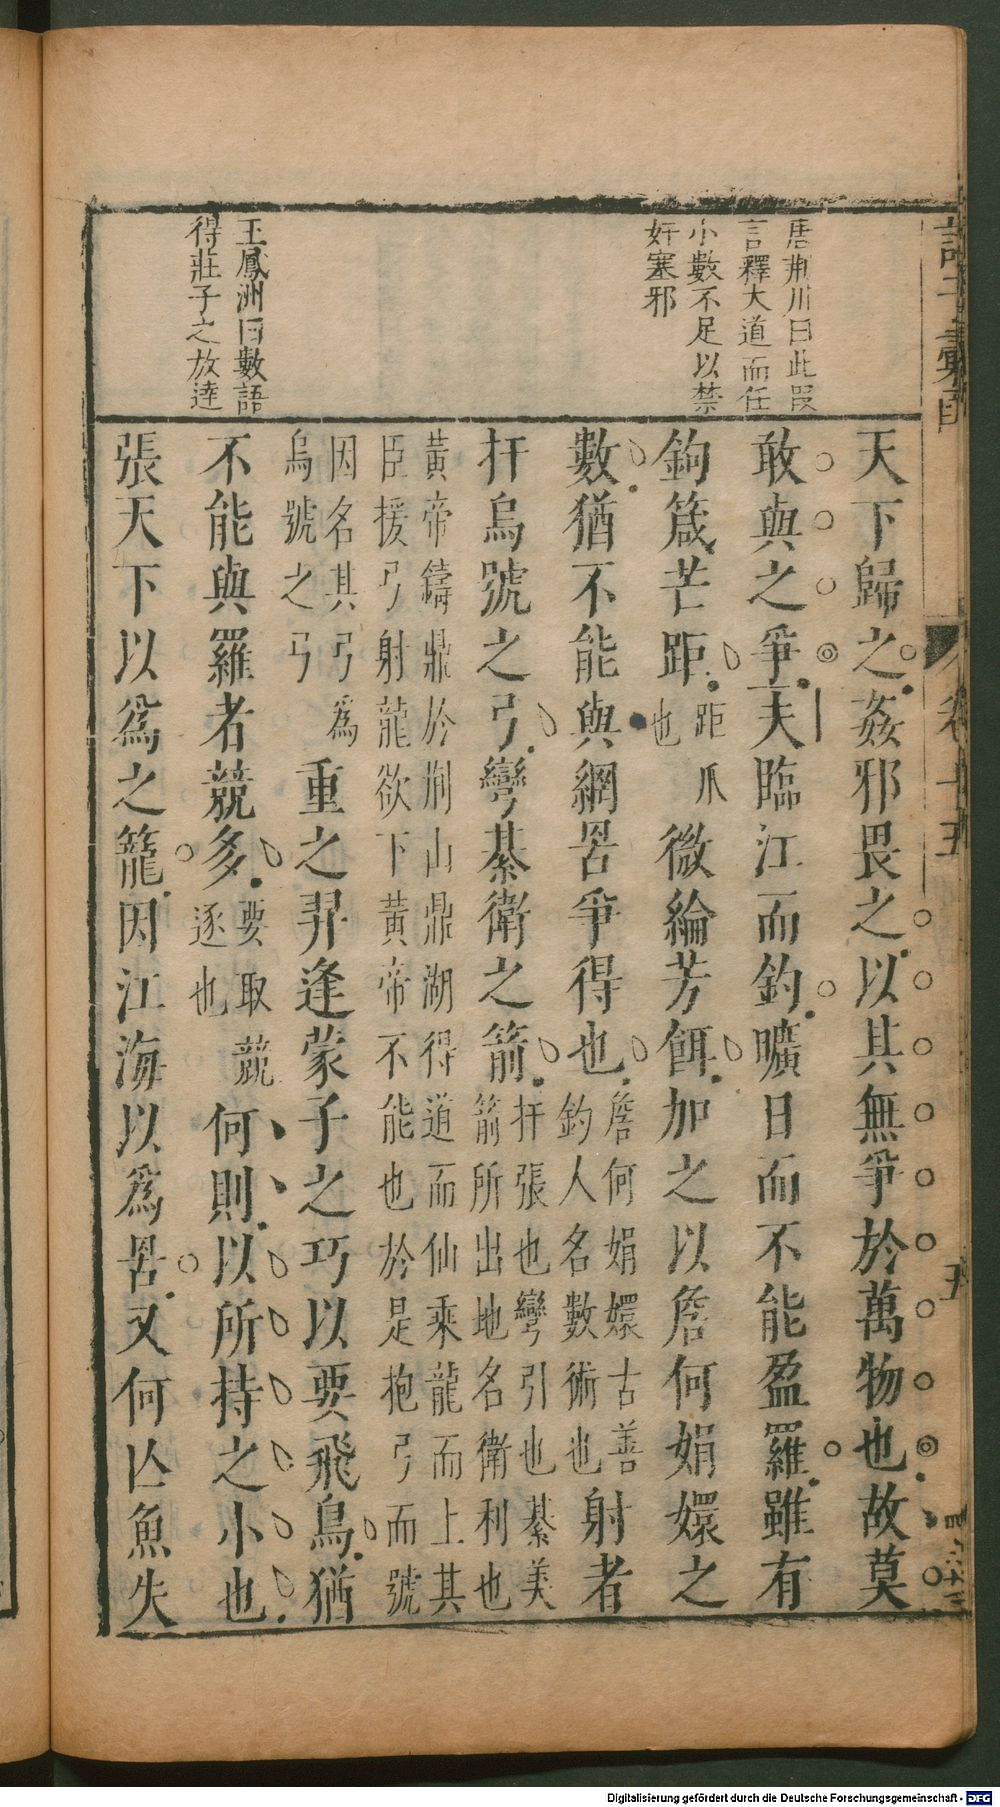 唐荆川曰此叚
言釋大道而任
小數不足以禁
奸塞邪
王鳳洲曰數語
得莊子之放達
天下歸之姦邪畏之以其無爭於萬物也故莫
敢與之爭夫臨江而釣曠日而不能盈羅雖有
鉤箴芒距
距爪
也
微綸芳餌加之以詹何娟嬛之
數猶不能與網罟爭得也
詹何娟嬛古善
釣人名數術也
射者
扞烏號之弓彎綦衛之箭
扞張也彎引也綦美
箭所出地名衛利也
黃帝鑄鼎於荆山鼎湖得道而仙乘龍而上其
臣援弓射龍欲下黃帝不能也於是抱弓而號
因名其弓為
烏號之弓
重之羿逢蒙子之巧以要飛鳥猶
不能與羅者競多
要取競
逐也
何則以所持之小也
張天下以爲之籠因江海以爲罟又何亾魚失
卷十五
五
Digitalisierung gefördert durch die Deutsche Forschungsgemeinschaft - DFG